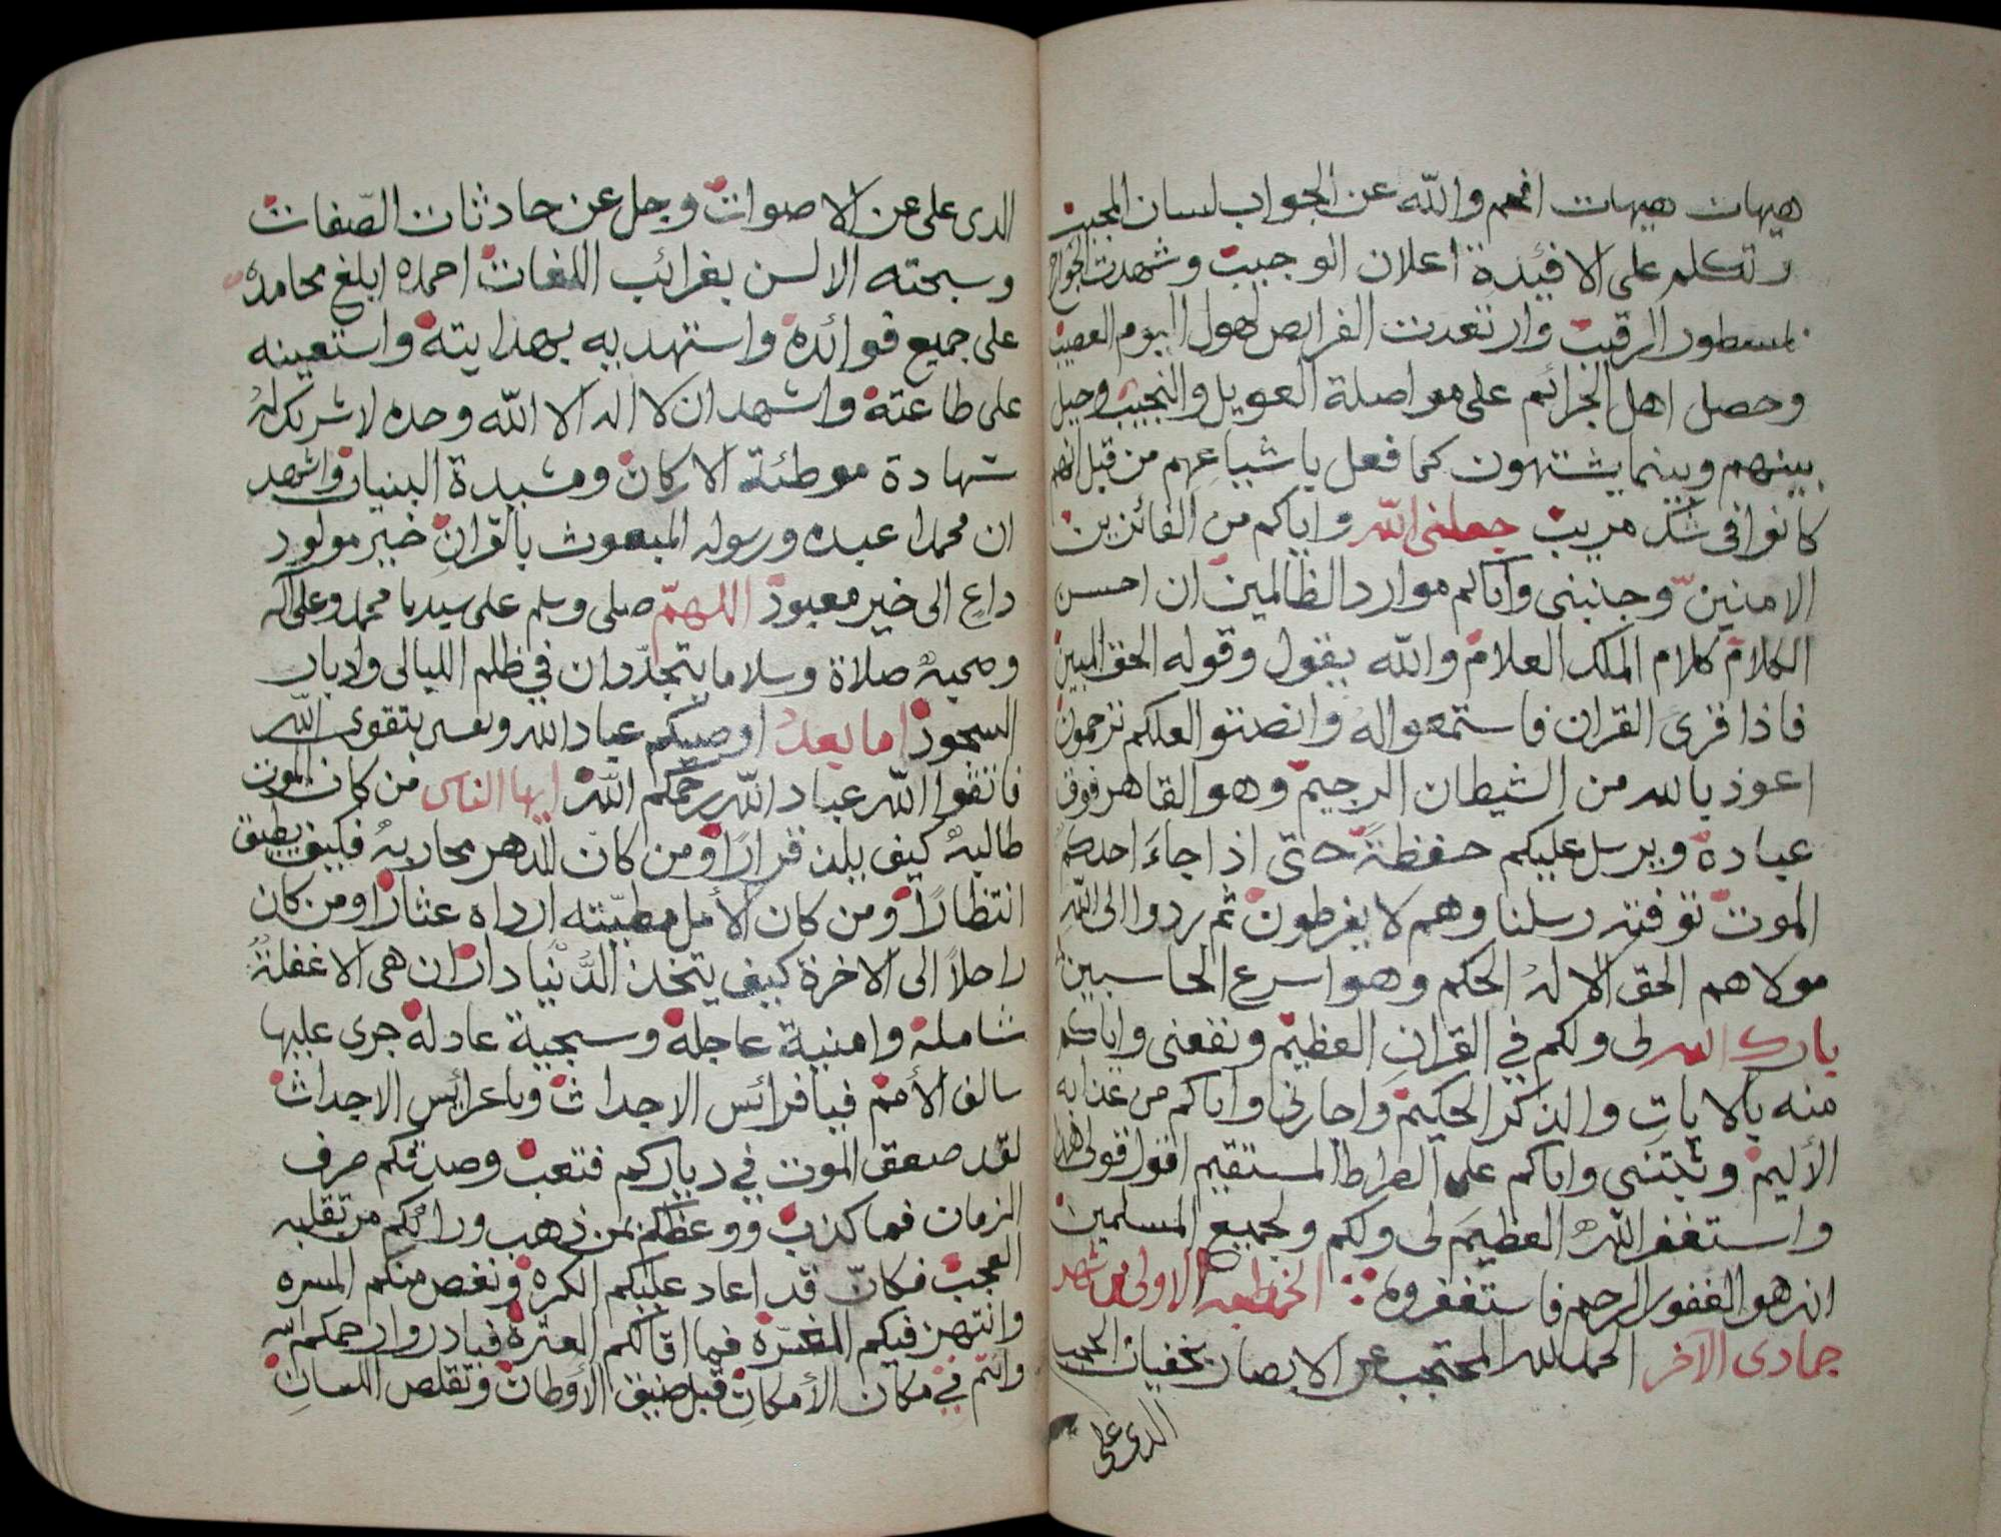 هيهات هيهات افحم والله عن الجواب لسان المجيب
وتكلم على الافئدة اعلان الوجيب وشهدت الجوارح
بمسطور الرقيب وارتعدت الفرايص لهول اليوم العصيب
وحصل اهل الجرائم على مواصلة العويل والنحيب وحيل
بينهم وبينما يشتهون كما فعل باشياعهم من قبل انهم
كانوا في شك مريب جعلني الله واياكم من الفائزين
الامنين وجنبني واياكم موارد الظالمين ان احسن
الكلام كلام الملك العلام والله يقول وقوله الحق المبين
فاذا قرى القران فاستمعوا له وانصتوا لعلكم ترحمون
اعوذ بالله من الشيطان الرجيم وهو القاهر فوق
عباده ويرسل عليكم حفظة حتى اذا جاءَ احدكم
الموت توفته رسلنا وهم لا يفرطون ثم ردوا الى الله
مولاهم الحق الا له الحكم وهو اسرع الحاسبين
بارك الله لى ولكم في القران العظيم ونفعنى واياكم
منه بالايات والذكر الحكيم واجارني واياكم من عذابه
الأليم وثبتنى واياكم على الصراط المستقيم اقول قولى هذا
واستغفر الله العظيم لى ولكم ولجميع المسلمين
انه هو الغفور الرحيم فاستغفروه الخطبه الاولى من شهر
جمادى الآخر الحمد لله المحتجب عن الابصار بخفيات
الدى على
الدى على عن الاصوات وجل عن حادثات الصّفات
وسبحته الالسن بغرائب اللغات احمده ابلغ محامده
على جميع فوائده واستهديه بهدايته واستعينه
على طاعته واشهد ان لا اله الا الله وحده لا شريك له
شهادة موطئة الاركان ومشيدة البنيان واشهد
ان محمدا عبده ورسوله المبعوث بالقران خير مولود
داعٍ الى خير معبود اللهمّ صلى وسلم على سيدنا محمد وعلى آله
وصحبه صلاة وسلاما يتجدّدان في ظلم الليالى وادبار
السجود اما بعد اوصيكم عباد الله ونفسى بتقوى الله
فاتقوا الله عباد الله رحمكم الله ايها الناس من كان الموت
طالبه كيف يلذ قرارًا ومن كان الدهر محاربه فكيف يطيق
انتظارًا ومن كان الأمل مطيّته ارداه عثارا ومن كان
راحلاً الى الاخرة كيف يتخذ الدُّنيا دارا ان هى الا غفلة
شاملة وامنية عاجلة وسجية عادلة جرى عليها
سالف الأمم فيا فرائس الاحداث ويا عرائس الاجداث
لقد صعق الموت في دياركم فنعب وصدقكم صرف
الزمان فما كذب ووعظكم بمن ذهب ورائكم من تقلبه
العجب فكانّ قد اعاد عليكم الكره ونغص منكم المسره
وانتهز فيكم الغرّة فما اقالكم العثرة فبادروا رحمكم الله
وانتم في مكان الأمكان قبل ضيق الأوطان وتقلص اللسان